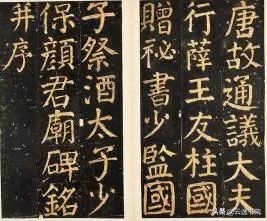 唐故通議大夫
行薛王友柱國
贈秘書少監國
子祭酒太子少
保顏君廟碑銘
并序